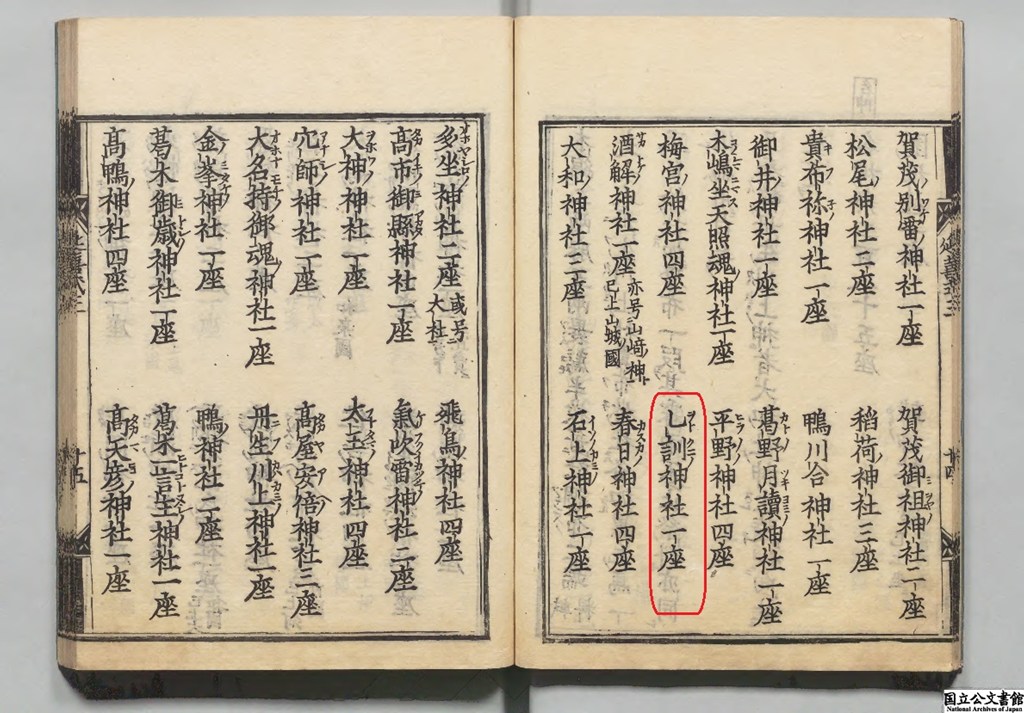 賀茂別雷神社一座
賀茂御祖神社二座
松尾神社二座
稲荷神社三座
貴布祢神社一座
鴨川合神社一座
御井神社一座
葛野月讀神社一座
木嶋坐天照魂神社一座
平野神社四座
梅宮神社四座
乙訓神社一座
酒解神社一座 亦号山﨑神 已上山城國
春日神社四座
大和神社三座
石上神社一座
多坐神社二座 或号大社
飛鳥神社四座
高市御縣神社一座
氣吹雷神社二座
大神神社一座
太玉神社四座
穴師神社一座
髙屋安倍神社三座
大名持御魂神社一座
丹生川上神社一座
金峯神社一座
鴨神社二座
葛木御歳神社一座
葛木一言主神社一座
髙鴨神社四座
髙天彦神社一座
延喜式三
廿四
廿五
国立公文書館
National Archives of Japan